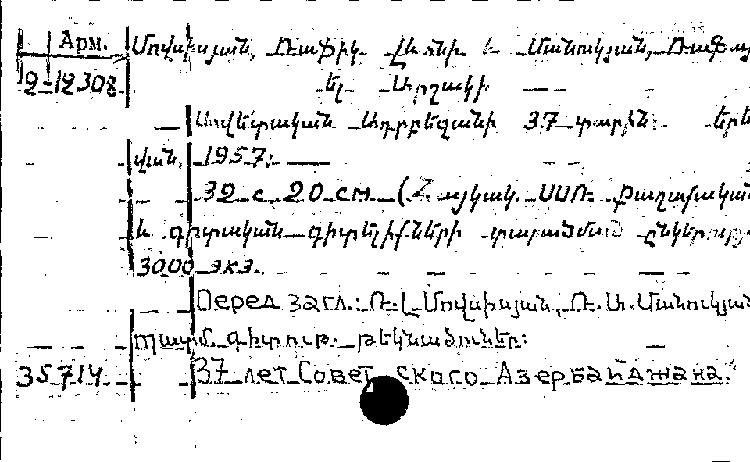 Арм. Մովսիսյան, Ռաֆիկ Լևոնի և Մանուկյան, Ռաֆայ
2-12308 ել Արշակի
Սովետական Ադրբեջանի 37 տարին: Երև
վան, 1957:
32 с. 20 см. (Հայկակ. ՍՍՌ քաղաքական
և գիտական գիտելիքների տարածման ընկերությ
3000 экз.
Перед загл.: Ռ. Լ. Մովսիսյան, Ռ. Ա. Մանուկյան
պատմ. գիտութ. թեկնածուներ:
35714 37 лет Советского Азербайджана.